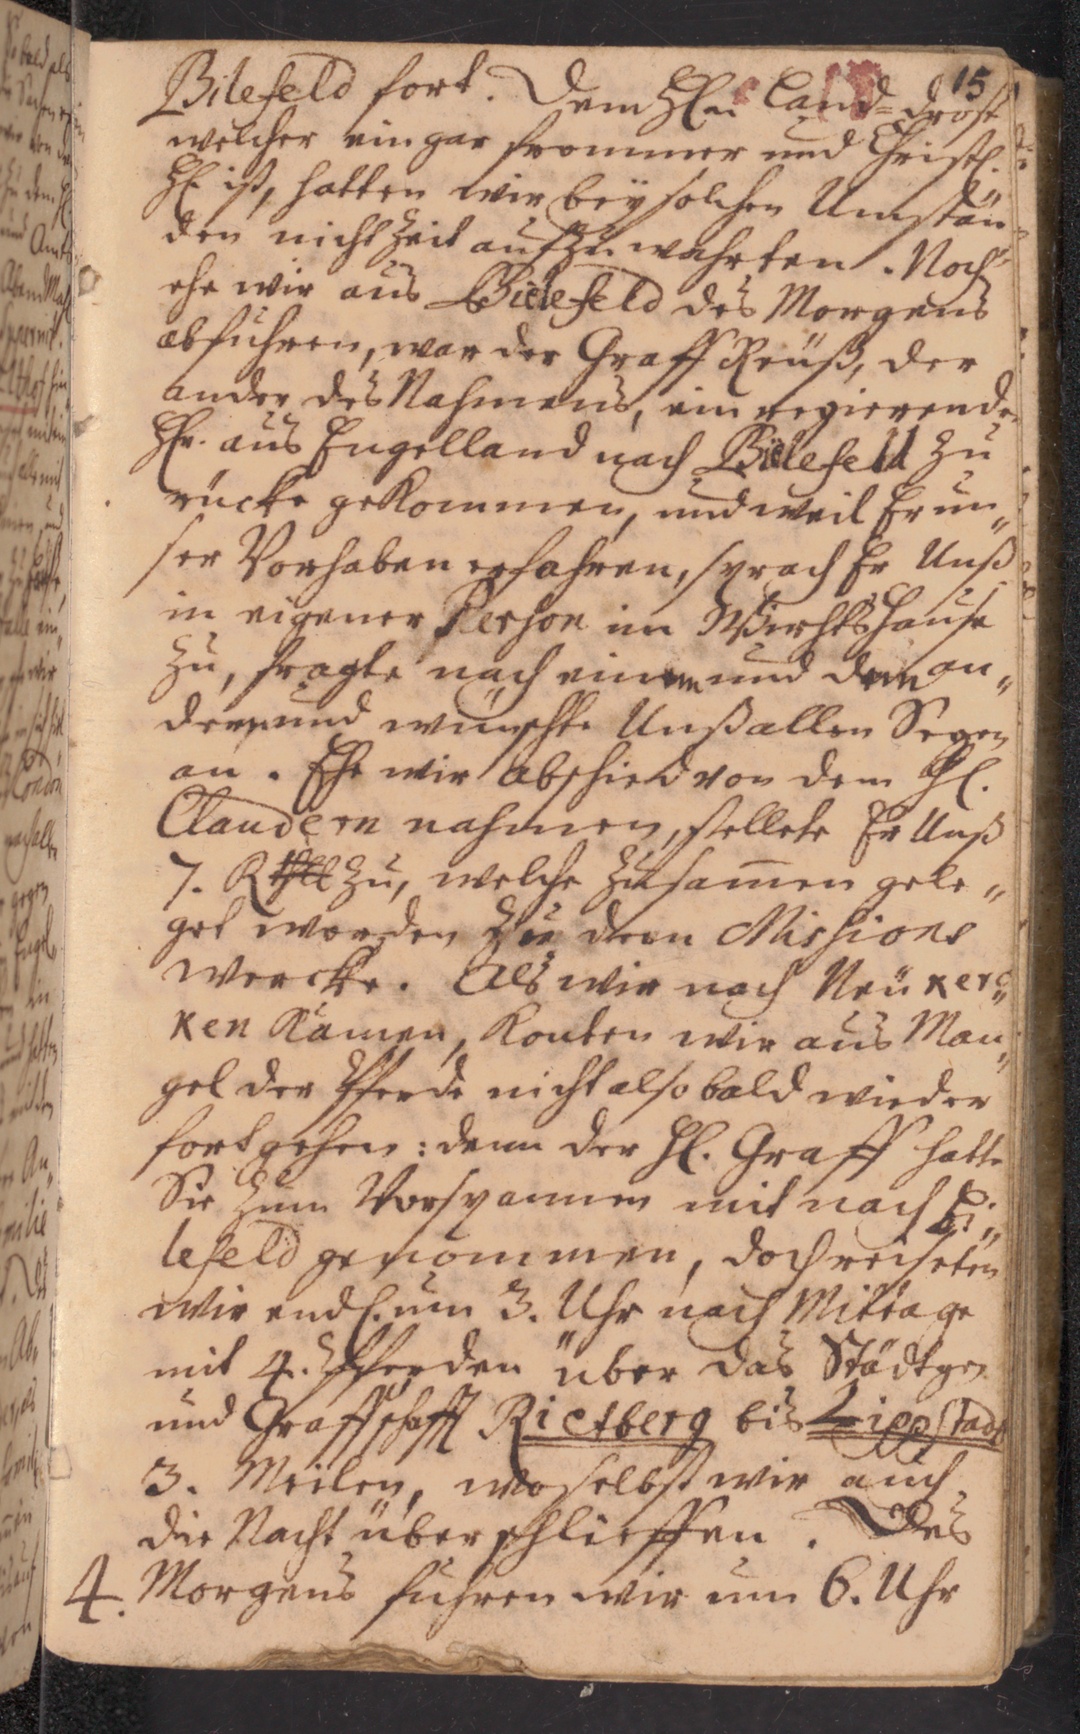 15
Bilefeld fort. Dem H.n Land-Drost
welcher ein gar frommer und Christl.
H. ist, hatten wir bey solchen Umstän
den nicht Zeit aufzuwahrten. Noch
ehe wir aus Bielefeld des Morgens
abfuhren, war der Graff Reüß, der
ander des Nahmens, ein regierender
Hr. aus Engelland nach Bielefeld zu
rücke gekommen, und weil Er un„
ser Vorhaben erfahren, sprach Er Unß
in eigener Person im Wirthshause
zu, fragte nach einem und dem an„
dern und wünschte Unß allen Segen
an. Ehe wir Abschied von dem H.
Claudern nahmen, stellete Er Unß
7. Rthll zu, welche zusam̄en gele„
get worden zu dem Missions
wercke. Als wir nach Neü Kerc„
ken kamen, konten wir aus Man„
gel der Pferde nicht also bald wieder
fortgehen: denn der H. Graff hatte
Sie zum Vorspannen mit nach Bi„
lefeld genommen, doch reiseten
wir endl. um 3. Uhr nach Mittage
mit 4. Pferden über das Städtgen
und Graffschafft Rietberg bis Lippstadt
3. Meilen, woselbst wir auch
die Nacht über schlieffen. Des
4. Morgens fuhren wir um 6. Uhr